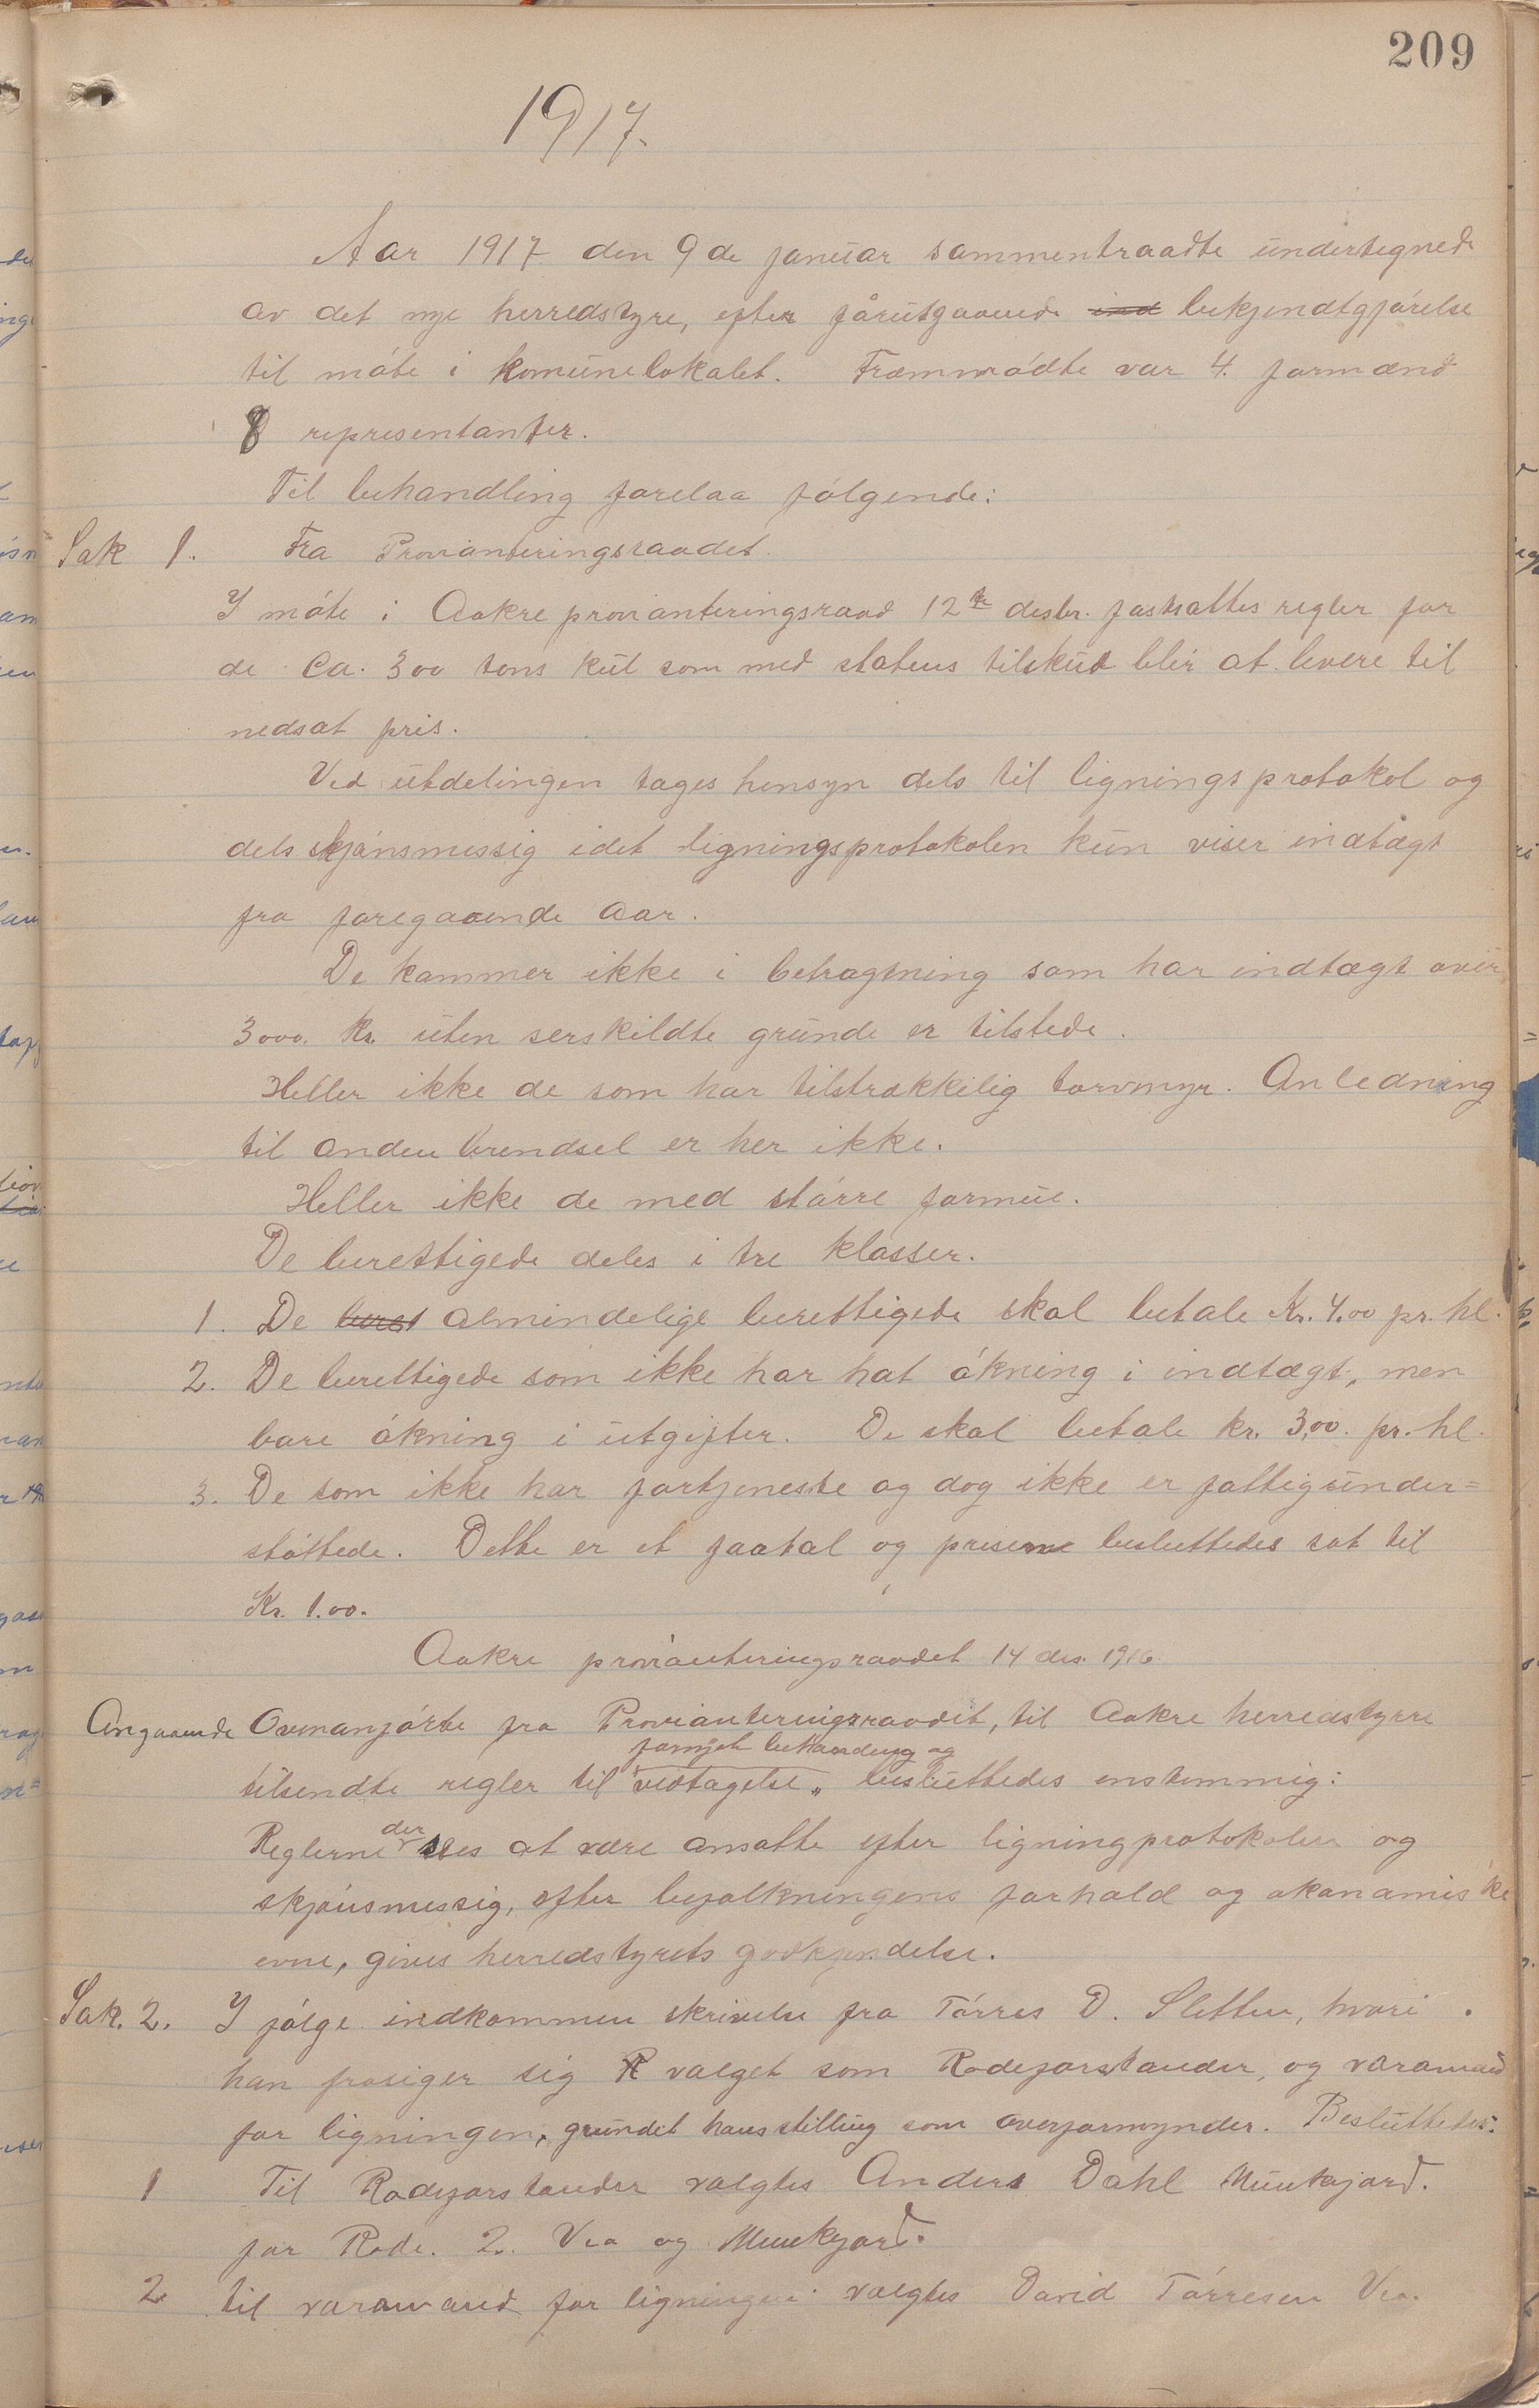 209
1917.
Aar 1917 den 9de januar sammentraadte undertegnede
av det nye herredstyre, efter fårutgaaende ind bekjendtgjórelse
til móte i komunelokalet. Fræmmódte var 4. formænd
8 representanter.
Til behandling forelaa fólgende:
Sak 1. Fra Provianteringsraadet.
I móte i Aakre provianteringsraad 12te desbr. fastsattes regler for
de ca. 300 tons kul som med statens tilskud blir at levere til
nedsat pris.
Ved utdelingen tages hensyn dels til ligningsprotokol og
dels skjónsmessig idet ligningsprotokolen kun viser indtægt
fra foregaaende aar.
De kommer ikke i betragtning som har indtægt over
3000. Kr. uten serskildte grunde er tilstede.
Heller ikke de som har tilstrækkilig torvmyr. Anledning
til anden brendsel er her ikke.
Heller ikke de med stórre formue.
De berettigede deles i tre klasser.
1. De berst almindelige berettigede skal betale Kr. 4.00 pr. hl.
2. De berettigede som ikke har hat ókning i indtægt, men
bare ókning i utgifter. De skal betale kr. 3,00. pr. hl.
3. De som ikke har fortjeneste og dog ikke er fattigunder=
stóttede. Dette er et faatal og prisen besluttedes sat til
Kr. 1.00.
Aakre provianteringsraadet 14 des. 1916.
Angaaende Ovenanfórte fra Provianteringsraadet, til Aakre herredstyre
behandling og
tilsendte regler til vedtagelse, besluttedes enstemmig:
der
Reglerne sees at være ansatte efter ligningprotokolen og
skjónsmessig, efter befolkningens forhold og økonomiske
evne, gives herredstyrets godkjendelse.
Sak. 2. I fólge indkommen skrivelse fra Tórres D. Sletten, hvori
han frasiger sig valget som Rodeforstander, og varamand
for ligningen, grundet hans stilling som overformynder. Besluttedes:
1 Til Rodeforstander valgtes Anders Dahl Munkejord.
for Rode. 2. Vea og Munkejord.
2 til varamand for ligningen valgtes David Tórresen Vea.